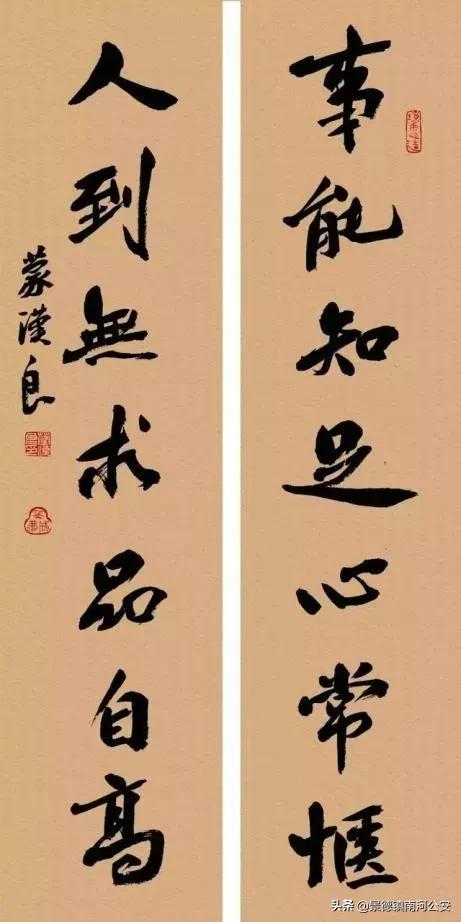 事能知足心常惬
人到無求品自高
蒙漢良
头条 @景德镇南河公安